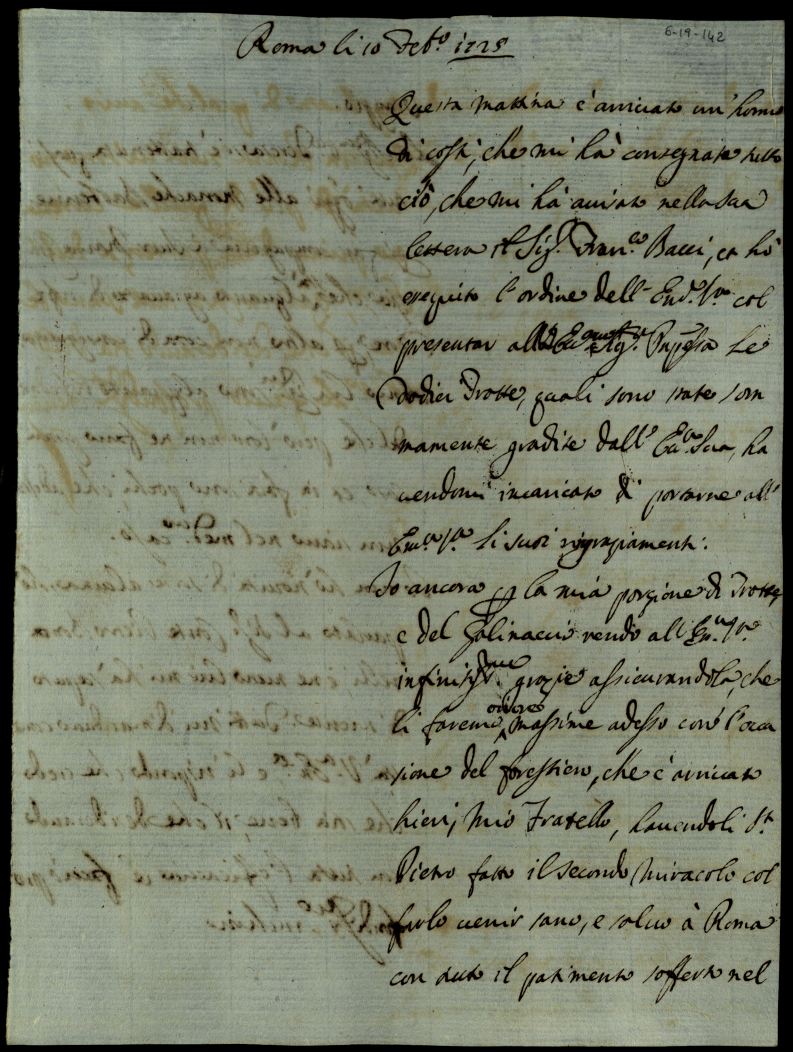 6-19-142
Roma li 10 Feb.º 1725
Questa mattina è arrivato un' homo
di costì, che mi hà consegnato tutto
ciò, che mi hà avisato nella sua
lettera il Sig.r Fran.co Bacci, et hò
exequito l'ordine dell' Em.ª V.ra col
presentar all' Sig.ª Pnpessa Le
Dodici Trotte, quali sono state som
mamente gradite dall' Ecc.ª Sua, ha
vendomi incaricato di portarne all'
Em.ª V.ra li suoi ringraziamenti.
Io ancora per la mia porzione di Trotte
e del Galinaccio rendo all' Em.ª V.ra
infinitiss.me grazie assicurandola, che
li faremo onore massime adesso con l'occa
sione del forestiero, che è arrivato
hieri, mio Fratello, havendoli S.t
Pietro fatto il secondo Miracolo col
farlo venir sano, e salvo à Roma
con tutto il patimento sofferto nel